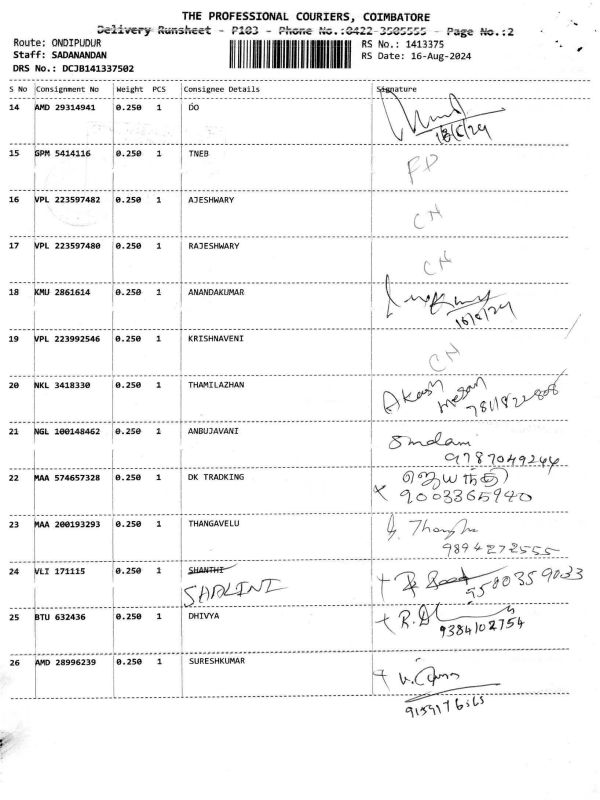 THE PROFESSIONAL COURIERS, COIMBATORE
Delivery Runsheet - P103 - Phone No.:0422-3505555 - Page No.:2
Route: ONDIPUDUR RS No.: 1413375
Staff: SADANANDAN RS Date: 16-Aug-2024
DRS No.: DCJB141337502
S No Consignment No Weight PCS Consignee Details Signature
14 AMD 29314941 0.250 1 DO
16/8/24
15 GPM 5414116 0.250 1 TNEB FD
16 VPL 223597482 0.250 1 AJESHWARY CN
17 VPL 223597480 0.250 1 RAJESHWARY CN
18 KMU 2861614 0.250 1 ANANDAKUMAR
16/8/24
19 VPL 223992546 0.250 1 KRISHNAVENI CN
20 NKL 3418330 0.250 1 THAMILAZHAN Akash
7811822808
21 NGL 100148462 0.250 1 ANBUJAVANI
9787049244
22 MAA 574657328 0.250 1 DK TRADKING ஜெயந்தி
x 9003365940
23 MAA 200193293 0.250 1 THANGAVELU
9894272555
24 VLI 171115 0.250 1 SHANTHI 9500359033
SHALINI
25 BTU 632436 0.250 1 DHIVYA
9384102754
26 AMD 28996239 0.250 1 SURESHKUMAR
9159176565